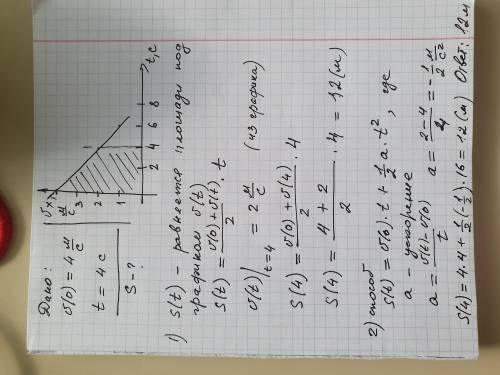 Дано:
v(0) = 4 м/с
t = 4 с
S - ?
vx м/с
4
3
2
1
2 4 6 8 t, с
1) S(t) - равняется площади под
графиком v(t)
S(t) = (v(0) + v(t))/2 · t
v(t)|t=4 = 2 м/с (из графика)
S(4) = (v(0) + v(4))/2 · 4
S(4) = (4 + 2)/2 · 4 = 12 (м)
2) способ
S(t) = v(0) · t + 1/2 a · t², где
a - ускорение
a = (v(t) - v(0))/t a = (2 - 4)/4 = -1/2 м/с²
S(4) = 4·4 + 1/2 (-1/2) · 16 = 12 (м) Ответ: 12 м